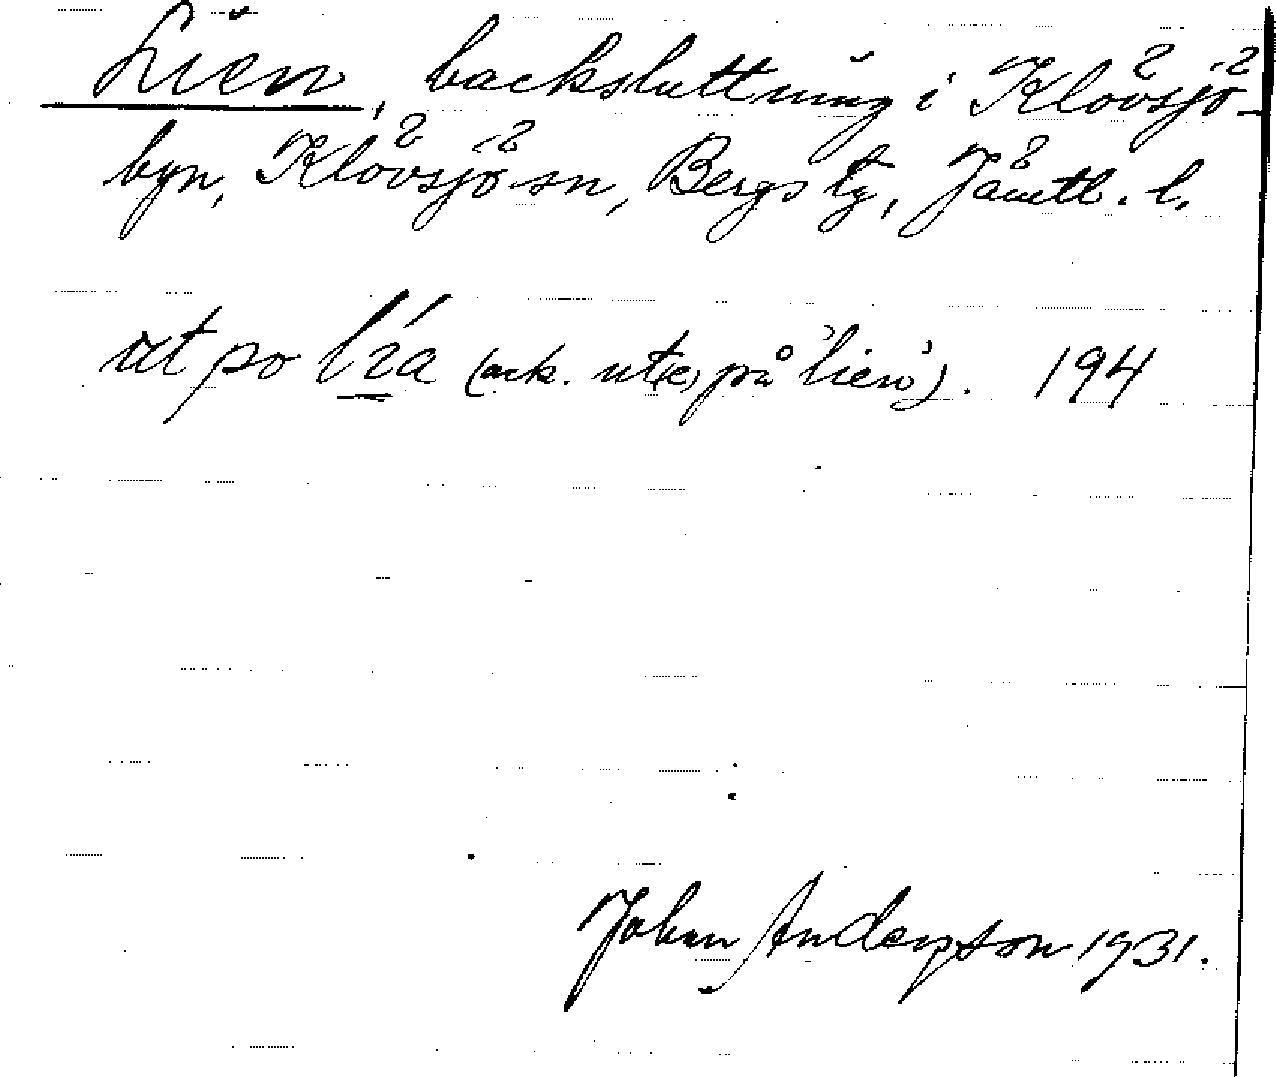 Lien, backsluttning i Klövsjö-
byn, Klövsjö sn, Bergs tg, Jämtl. l.
ut po lía (ack. ut(e) på 'lien'). 194
Johan Anderson 1931.